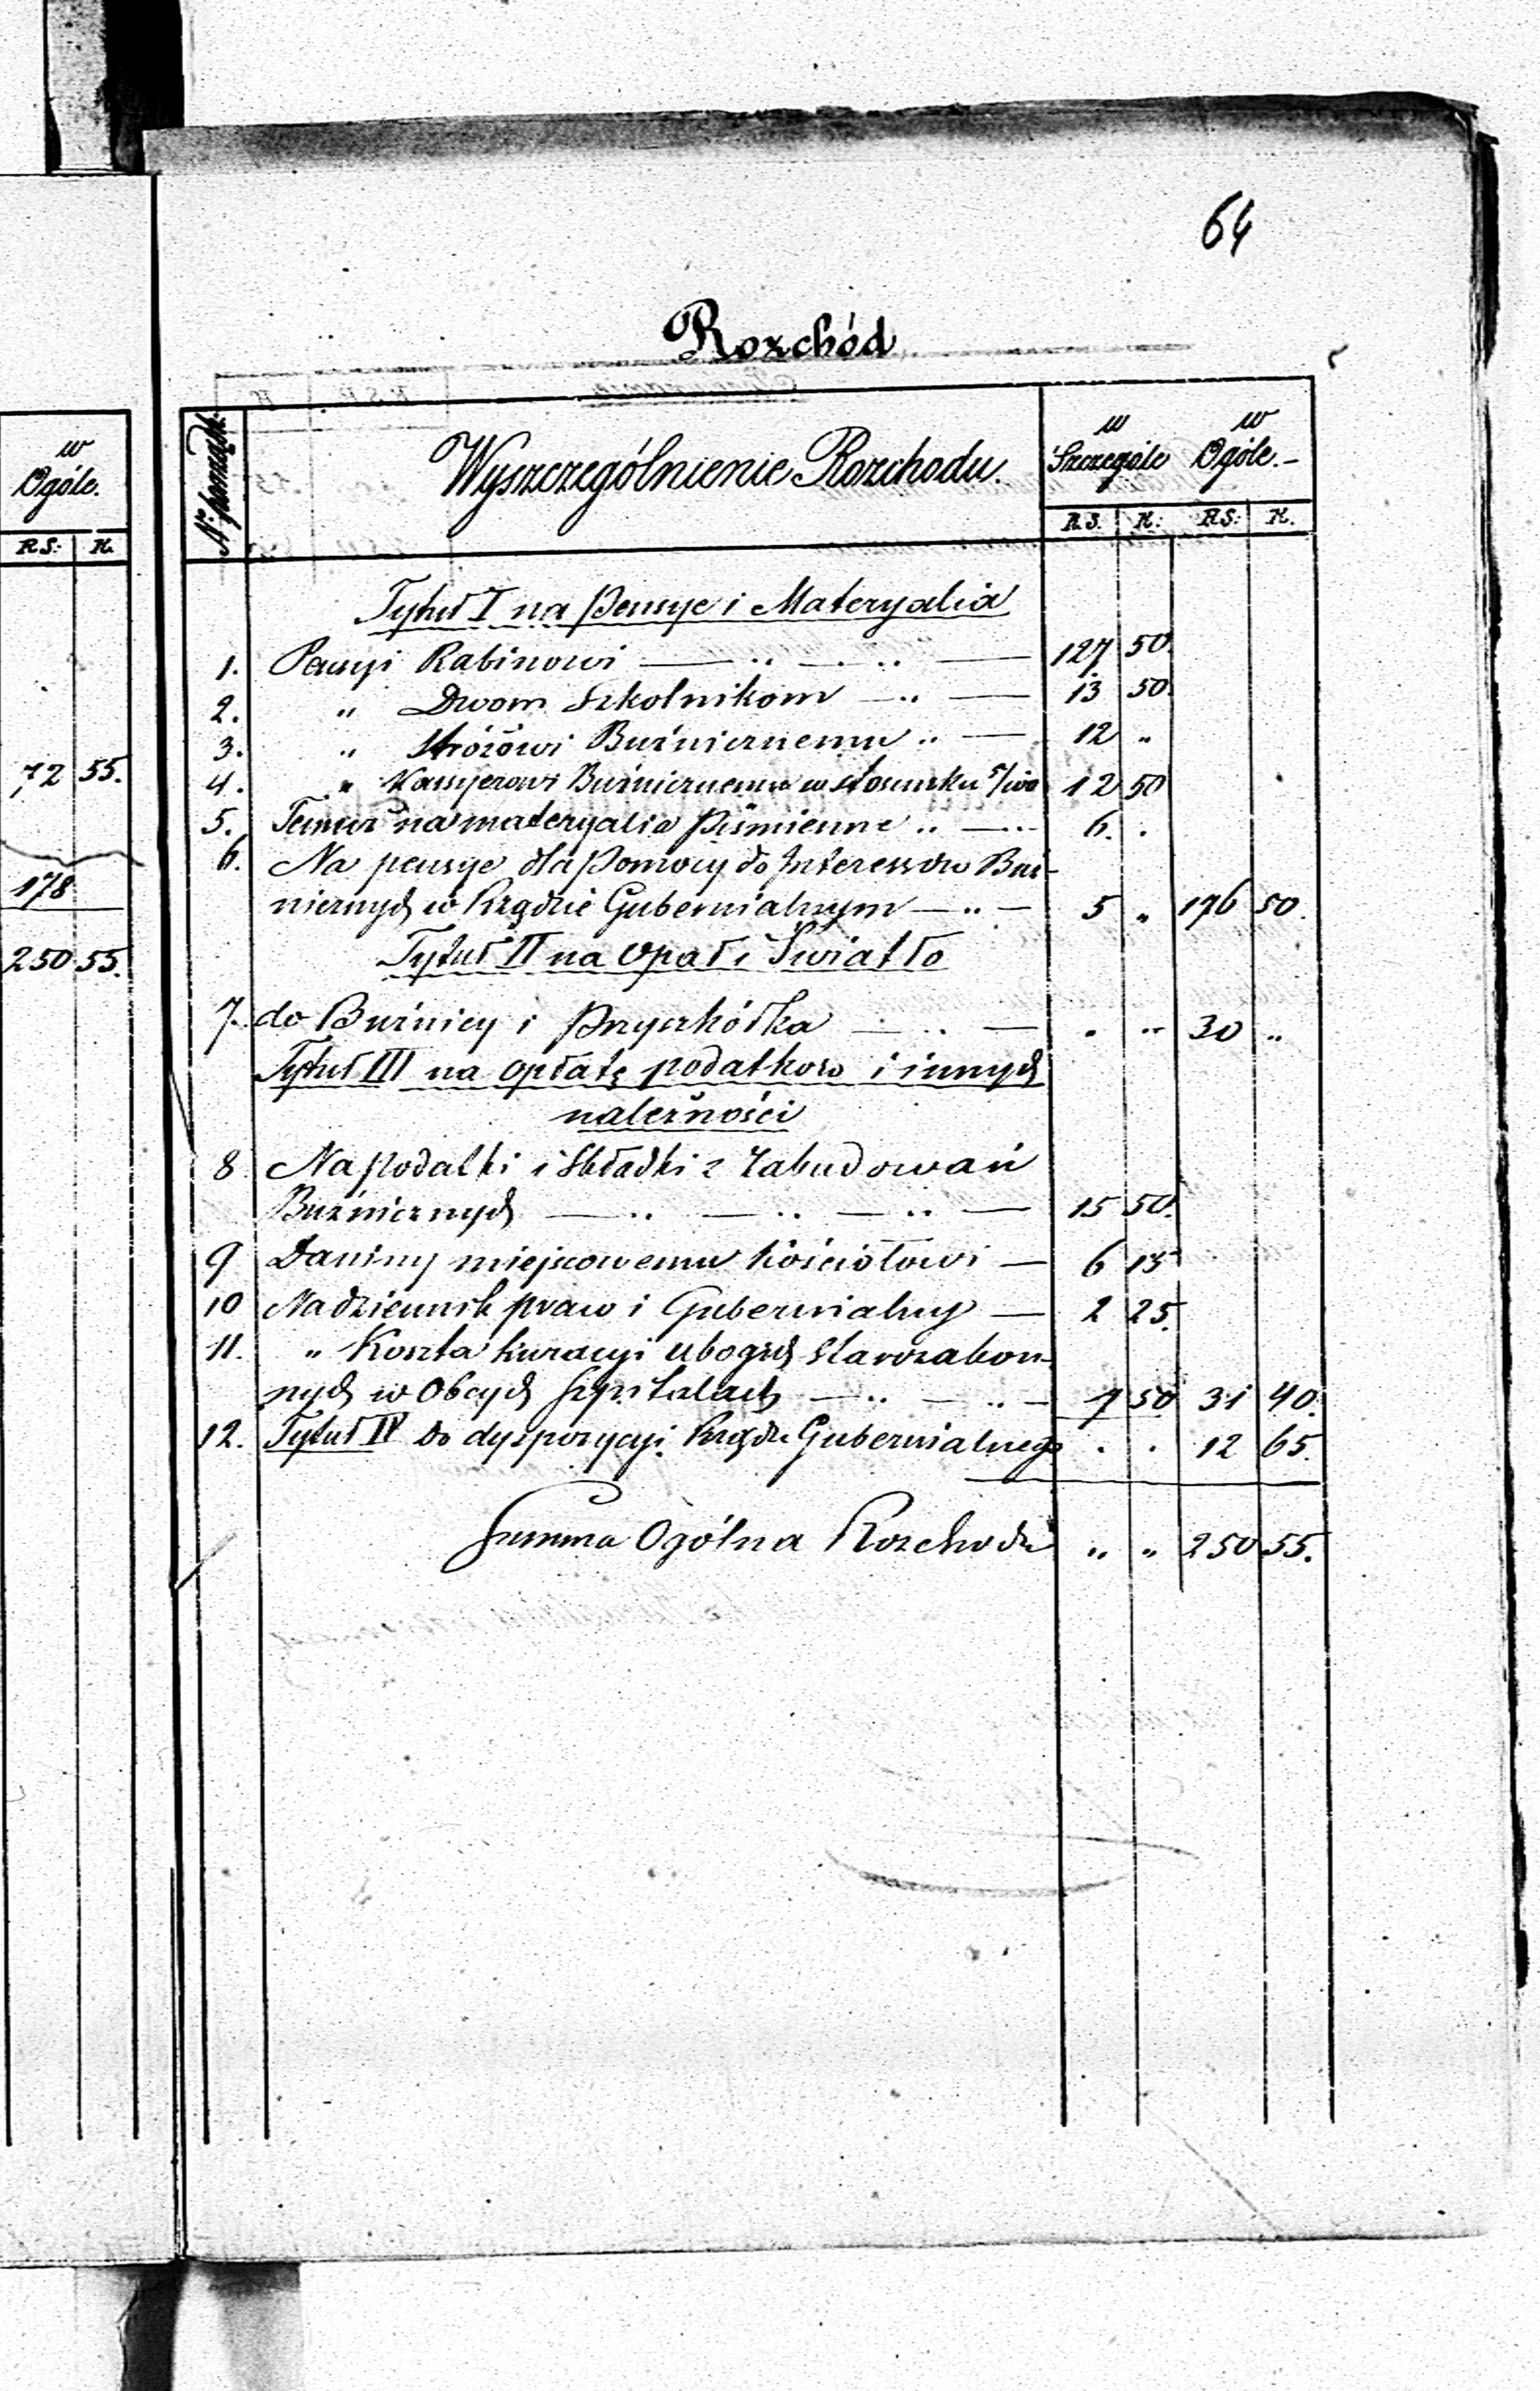 64
Rozchód
w Ogóle.
R.S. K.
72 55.
178
250 55.
Nr porządk. Wyszczególnienie Rozchodu. w Szczególe w Ogóle.
R.S. K. R.S. K.
Tytuł I na Pensye i Materyalia
1. Pensyi Rabinowi 127 50
2. " Dwom Szkolnikom 13 50.
3. " Stróżowi Bużnicznemu 12 "
4. " Kassyerowi Bużnicznemu w stosunku 12 50
5. Temuż na materyalia Piśmienne 6. .
6. Na pensye dla Pomocy do Interessów Buż-
nicznych w Rządzie Gubernialnym 5 " 176 50.
Tytuł II na Opał i Światło
7. do Bużnicy i Przyszkółka . " 30 "
Tytuł III na opłatę podatkow i innych
należności
8 Na podatki i Składki z Zabudowań
Bużnicznych 15 50.
9 Daniny miejscowemu kościołowi 6 15
10 Na dziennik praw i Gubernialny 2 25.
11. " Koszta kuracyi ubogich starozakon-
nych w Obcych Szpitalach 7 50 31 40.
12. Tytuł IV Do dyspozycyi Rządu Gubernialnego . . 12 65.
Summa Ogólna Rozchodu " " 250 55.